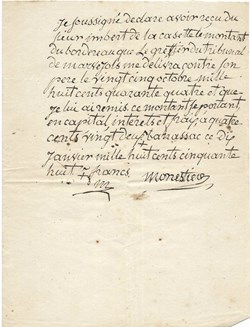 Je soussigné declare avoir reçu du
sieur imbert de la caze tte le montant
du bordreau que Le greffier du tribunal
de marvejols me delivra contre son
pere le vingt cinq octobre mille
huit cents quarante quatre et que
je lui ai remis ce montant se portant
en capital interets et frais a quatre
cents vingt deux banassac ce dix
+
Janvier mille huit cents cinquante
huit + francs.
M Monestier